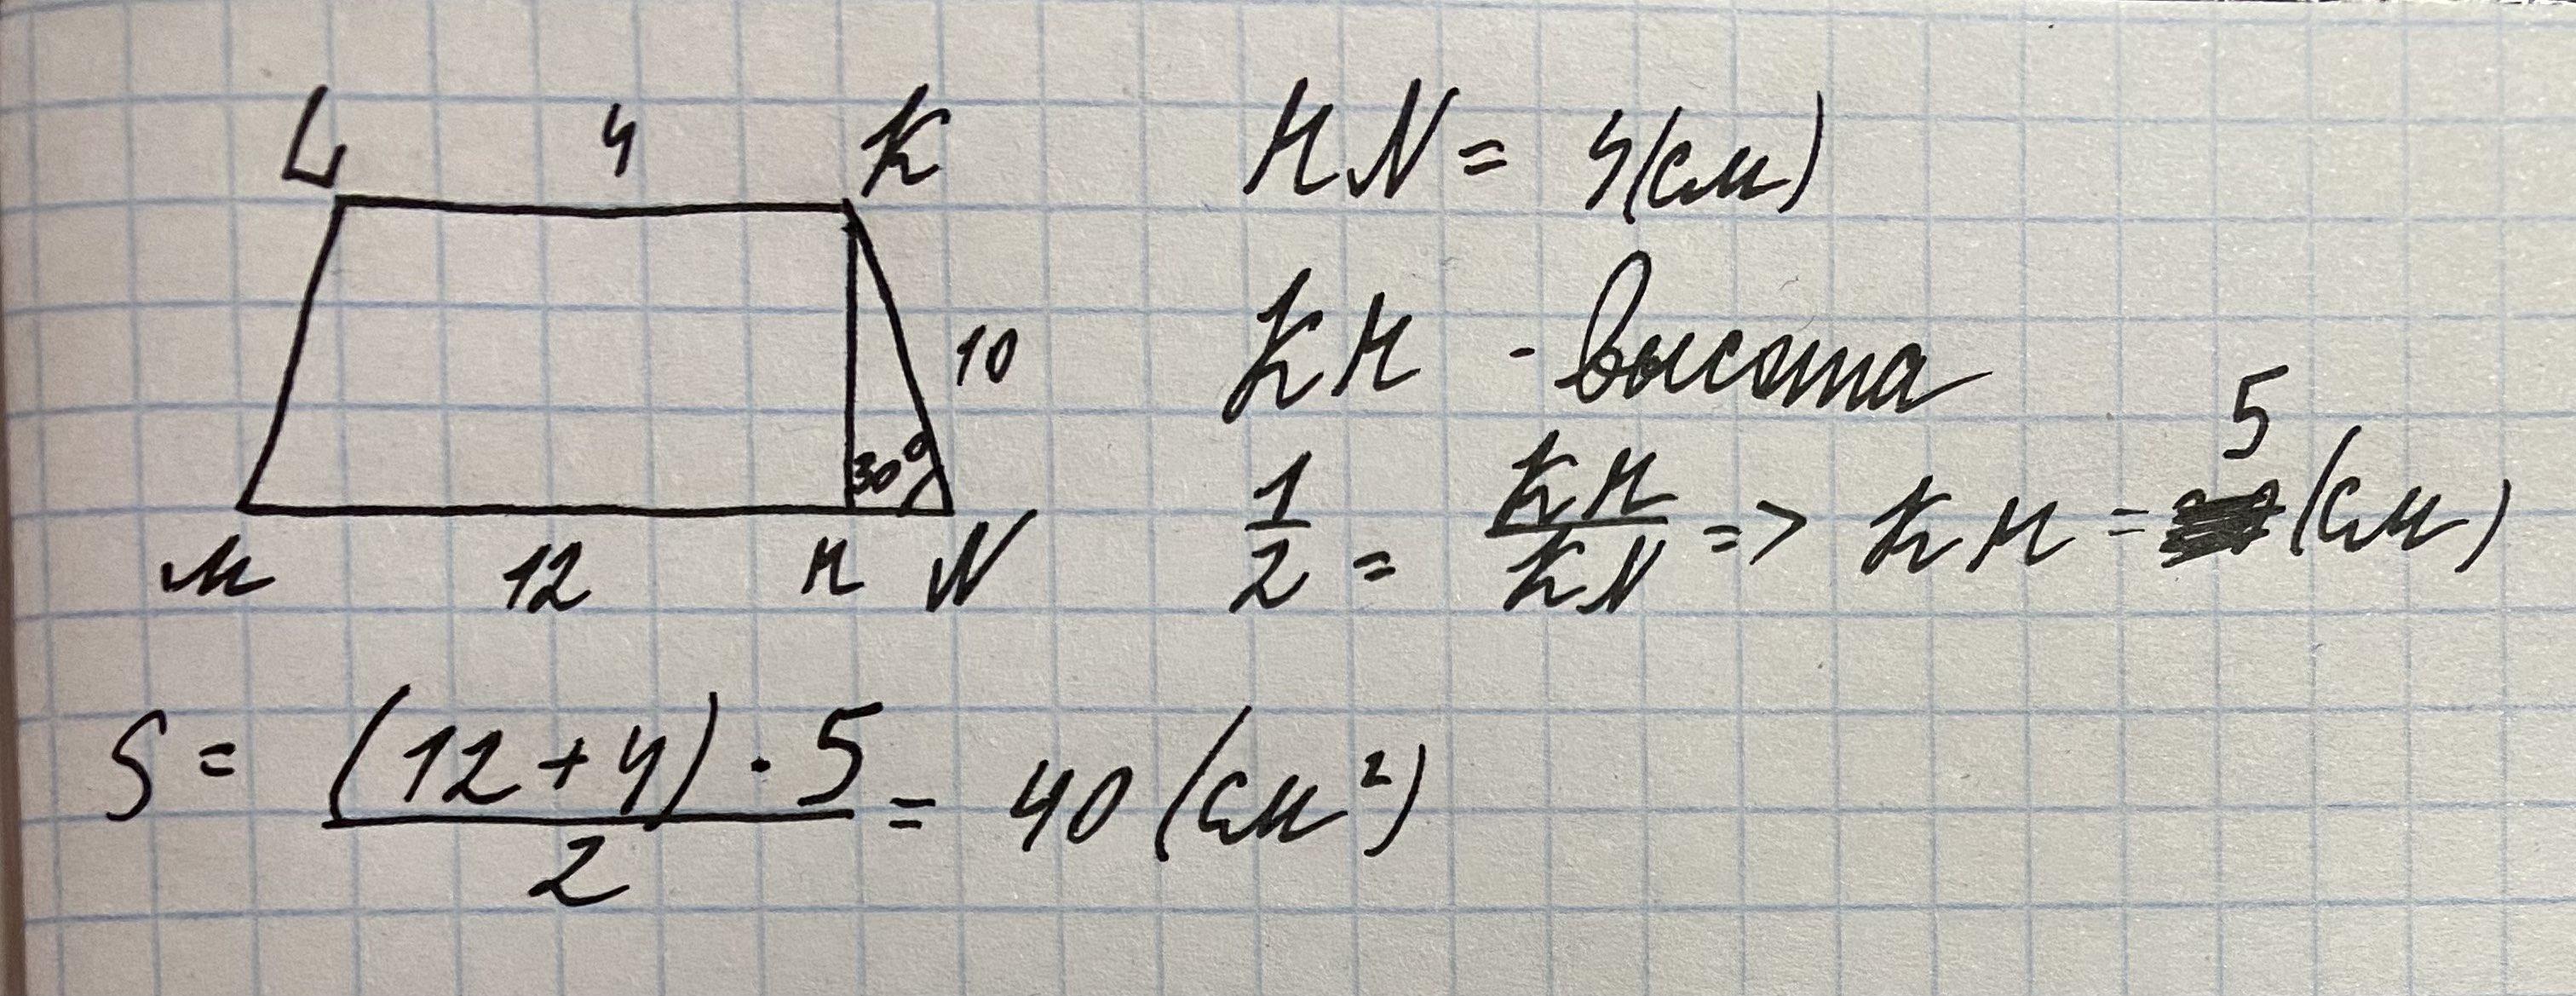 L 4 K
10
30°
M 12 H N
HN = 4(см)
KH - высота
1/2 = KH/KN => KH = 5 (см)
S = (12+4)·5/2 = 40 (см²)